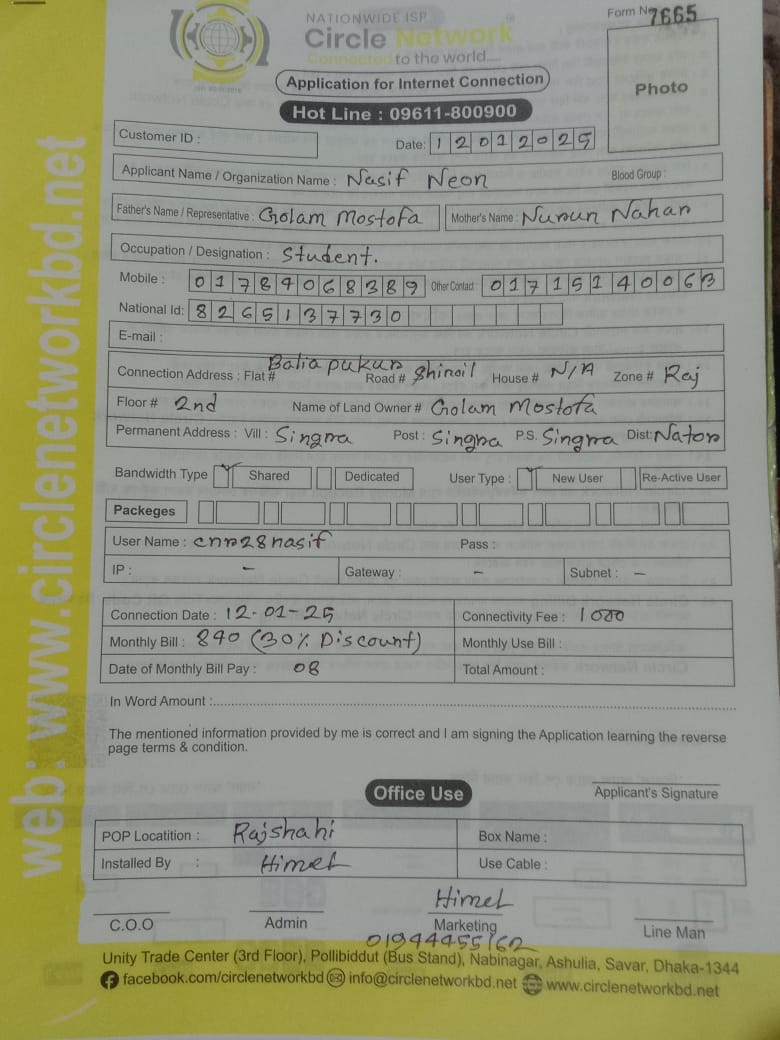 NATIONWIDE ISP
Circle Network
Connected to the world....
Form No 7665
Application for Internet Connection
Photo
Hot Line : 09611-800900
Customer ID :
Date: 12012025
Applicant Name / Organization Name : Nasif Neon Blood Group :
Father's Name / Representative : Golam Mostofa Mother's Name : Nurun Nahar
Occupation / Designation : Student.
Mobile : 01784068389 Other Contact : 01715140063
National Id: 8265137730
E-mail :
Connection Address : Flat # Balia pukur Road # Shiroil House # N/A Zone # Raj
Floor # 2nd Name of Land Owner # Golam Mostofa
Permanent Address : Vill : Singra Post : Singra P.S. Singra Dist: Nator
Bandwidth Type Shared Dedicated User Type : New User Re-Active User
Packeges
User Name : cnr28nasif Pass :
IP : – Gateway : – Subnet : –
Connection Date : 12-01-25 Connectivity Fee : 1000
Monthly Bill : 840 (30% Discount) Monthly Use Bill :
Date of Monthly Bill Pay : 08 Total Amount :
In Word Amount :
The mentioned information provided by me is correct and I am signing the Application learning the reverse
page terms & condition.
Applicant's Signature
Office Use
POP Locatition : Rajshahi Box Name :
Installed By : Himel Use Cable :
Himel
C.O.O Admin Marketing Line Man
01944455162
Unity Trade Center (3rd Floor), Pollibiddut (Bus Stand), Nabinagar, Ashulia, Savar, Dhaka-1344
facebook.com/circlenetworkbd info@circlenetworkbd.net www.circlenetworkbd.net
web: www.circlenetworkbd.net